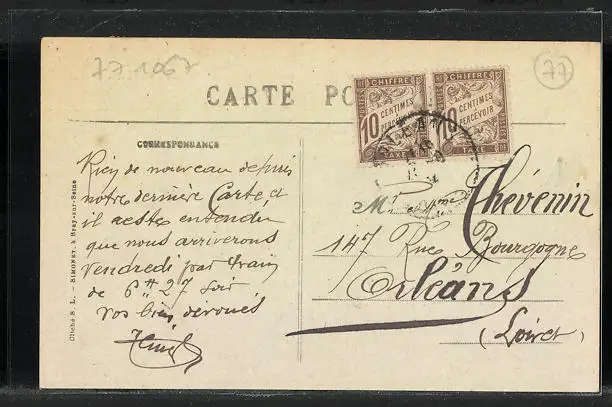 77.1067
77
CARTE PO
CHIFFRE CHIFFRE
10 CENTIMES À PERCEVOIR 10 CENTIMES À PERCEVOIR
TAXE TAXE
CORRESPONDANCE
Rien de nouveau depuis
notre dernière Carte et
il reste entendu
que nous arriverons
vendredi par train
de 6H 27 soir
vos bien dévoués
Thévenin
147 Rue Bourgogne
Orléans
(Loiret)
Cliché S. L. — SIMONET, à Bray-sur-Seine